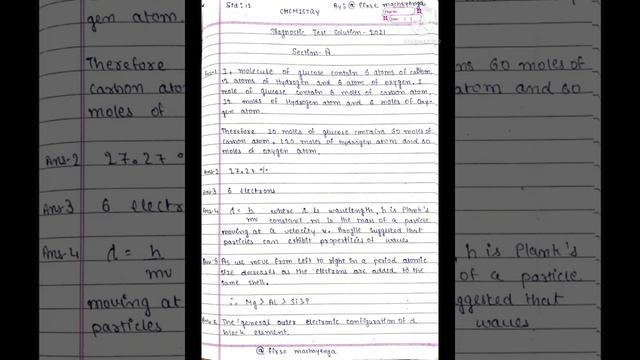 Std: 12
CHEMISTRY
By: @ firse machayenga
Diagnostic Test Solution - 2021
Section - A
Ans-1 1. molecule of glucose contain 6 atoms of carbon
12 atoms of Hydrogen and 6 atom of oxygen. 1
mole of glucose contain 6 moles of carbon atom,
12 moles of Hydrogen atom and 6 moles of Oxy-
gen atom.
Therefore 10 moles of glucose contains 60 moles of
carbon atom, 120 moles of hydrogen atom and 60
moles of oxygen atom.
Ans-2 27.27 %
Ans 3 6 electrons
Ans-4 λ = h where λ is wavelength, h is Plank's
mv constant m is the mass of a particle
moving at a velocity v. Broglie suggested that
particles can exhibit properties of waves
Ans-5 As we move from left to right in a period atomic
size decreases as the electrons are added to the
same shell.
∴ Mg > Al > Si > P
Ans-6 The general outer electronic configuration of d
block element.
@ firse machayenga
gen atom.
Therefore
carbon atom
moles of
Ans-2 27.27 %
Ans3 6 electr
Ans-4 λ = h
mv
moving at
particles
ns 60 moles of
atom and 60
h is Plank's
of a particle
ggested that
waves